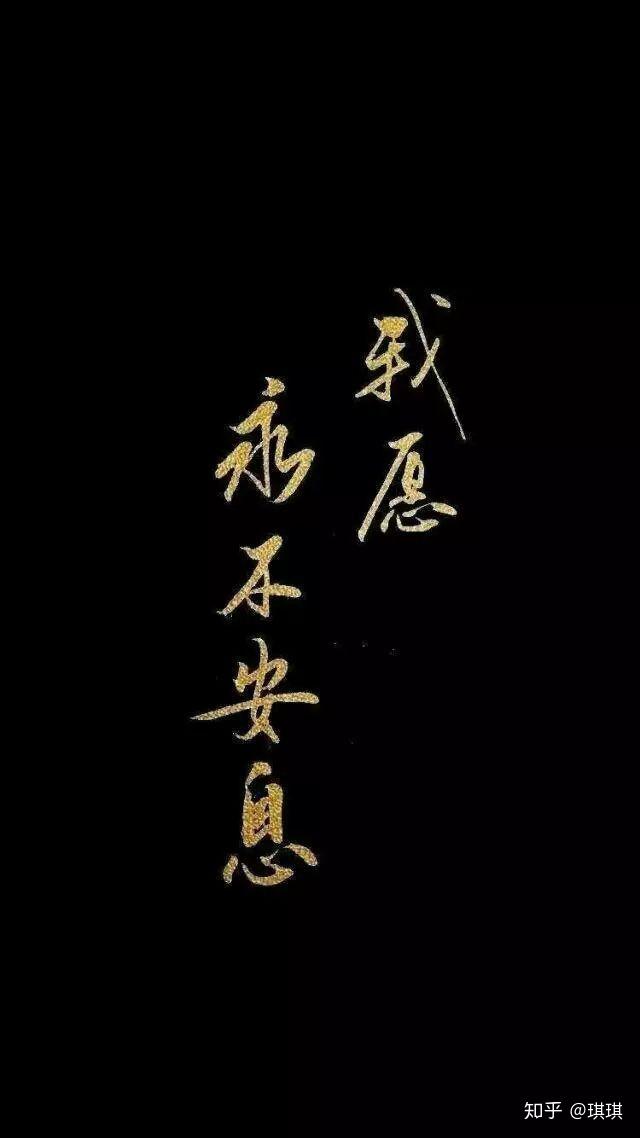 我愿
永不安息
知乎 @琪琪